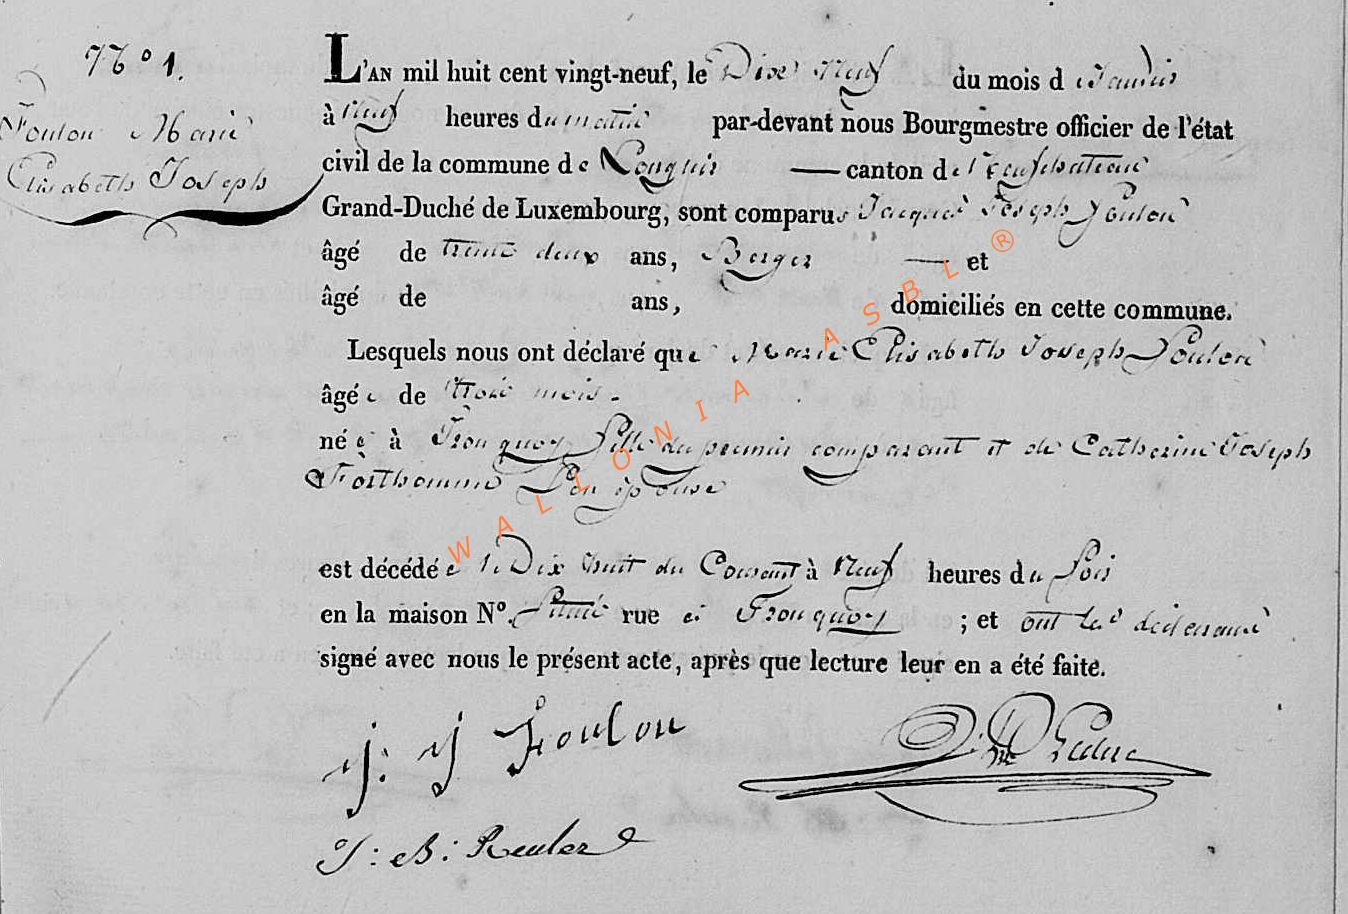 N° 1.
Foulon Marie
Elisabeth Joseph
L'AN mil huit cent vingt-neuf, le Dix Neuf du mois d Janvier
à Neuf heures du matin par-devant nous Bourgmestre officier de l'état
civil de la commune de Longlier canton de Neufchateau
Grand-Duché de Luxembourg, sont comparus Jacques Joseph Foulon
âgé de trente deux ans, Berger et
âgé de ans, domiciliés en cette commune.
Lesquels nous ont déclaré que Marie Elisabeth Joseph Foulon
âgée de trois mois.
née à Tronquoy fille du premier comparant et de Catherine Joseph
son épouse
est décédée le Dix huit du Courant à Neuf heures du Soir
en la maison N°. située rue à Tronquoy ; et ont les déclarans
signé avec nous le présent acte, après que lecture leur en a été faite.
J: J Foulon
J: B: Reuler
WALLONIA ASBL ®